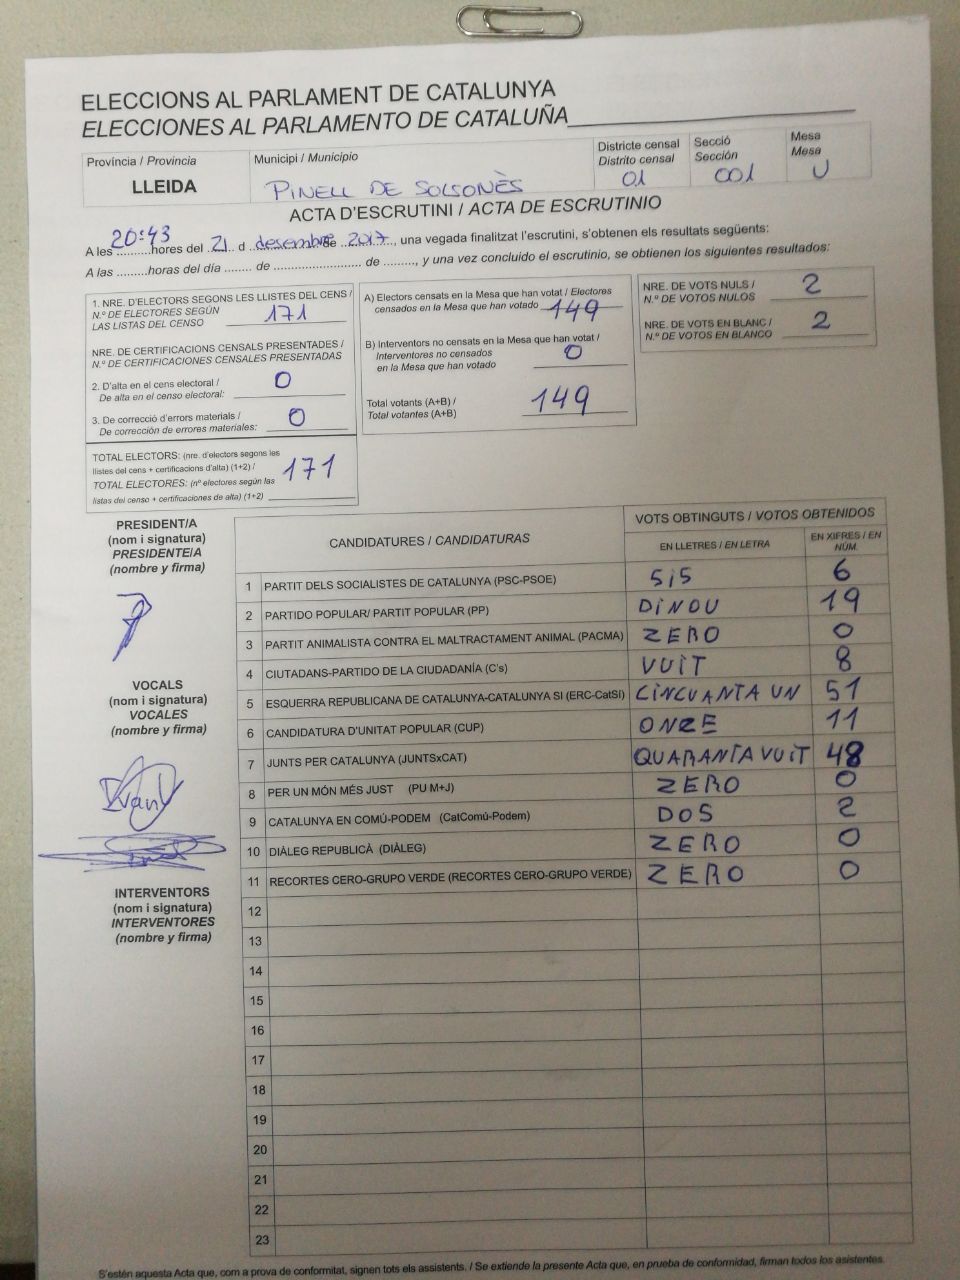 ELECCIONS AL PARLAMENT DE CATALUNYA
ELECCIONES AL PARLAMENTO DE CATALUÑA
Província / Provincia
LLEIDA
Municipi / Municipio
PINELL DE SOLSONÈS
Districte censal
Distrito censal
01
Secció
Sección
001
Mesa
Mesa
U
ACTA D'ESCRUTINI / ACTA DE ESCRUTINIO
A les 20:43 hores del 21 d desembre de 2017, una vegada finalitzat l'escrutini, s'obtenen els resultats següents:
A las .........horas del día ........ de .......................... de ........., y una vez concluido el escrutinio, se obtienen los siguientes resultados:
1. NRE. D'ELECTORS SEGONS LES LLISTES DEL CENS /
N.º DE ELECTORES SEGÚN
LAS LISTAS DEL CENSO 171
NRE. DE CERTIFICACIONS CENSALS PRESENTADES /
N.º DE CERTIFICACIONES CENSALES PRESENTADAS
2. D'alta en el cens electoral /
De alta en el censo electoral: 0
3. De correcció d'errors materials /
De corrección de errores materiales: 0
TOTAL ELECTORS: (nre. d'electors segons les
llistes del cens + certificacions d'alta) (1+2) /
TOTAL ELECTORES: (nº electores según las
listas del censo + certificaciones de alta) (1+2) 171
A) Electors censats en la Mesa que han votat / Electores
censados en la Mesa que han votado 149
B) Interventors no censats en la Mesa que han votat /
Interventores no censados
en la Mesa que han votado 0
Total votants (A+B) /
Total votantes (A+B) 149
NRE. DE VOTS NULS /
N.º DE VOTOS NULOS 2
NRE. DE VOTS EN BLANC /
N.º DE VOTOS EN BLANCO 2
PRESIDENT/A
(nom i signatura)
PRESIDENTE/A
(nombre y firma)
VOCALS
(nom i signatura)
VOCALES
(nombre y firma)
Ivan
INTERVENTORS
(nom i signatura)
INTERVENTORES
(nombre y firma)
CANDIDATURES / CANDIDATURAS
VOTS OBTINGUTS / VOTOS OBTENIDOS
EN LLETRES / EN LETRA
EN XIFRES / EN
NÚM.
1 PARTIT DELS SOCIALISTES DE CATALUNYA (PSC-PSOE) SIS 6
2 PARTIDO POPULAR/ PARTIT POPULAR (PP) DINOU 19
3 PARTIT ANIMALISTA CONTRA EL MALTRACTAMENT ANIMAL (PACMA) ZERO 0
4 CIUTADANS-PARTIDO DE LA CIUDADANÍA (C's) VUIT 8
5 ESQUERRA REPUBLICANA DE CATALUNYA-CATALUNYA SI (ERC-CatSI) CINCUANTA UN 51
6 CANDIDATURA D'UNITAT POPULAR (CUP) ONZE 11
7 JUNTS PER CATALUNYA (JUNTSxCAT) QUARANTA VUIT 48
8 PER UN MÓN MÉS JUST (PU M+J) ZERO 0
9 CATALUNYA EN COMÚ-PODEM (CatComú-Podem) DOS 2
10 DIÀLEG REPUBLICÀ (DIÀLEG) ZERO 0
11 RECORTES CERO-GRUPO VERDE (RECORTES CERO-GRUPO VERDE) ZERO 0
12
13
14
15
16
17
18
19
20
21
22
23
S'estén aquesta Acta que, com a prova de conformitat, signen tots els assistents. / Se extiende la presente Acta que, en prueba de conformidad, firman todos los asistentes.